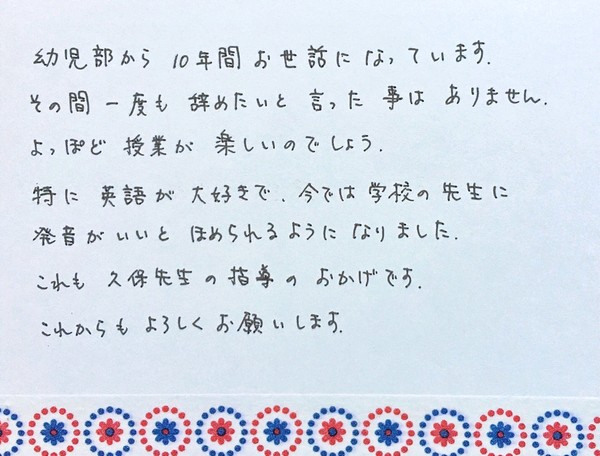 幼児部から 10年間 お世話になっています.
その間 一度も 辞めたいと 言った 事は ありません.
よっぽど 授業が 楽しいのでしょう.
特に 英語が 大好きで、今では 学校の 先生に
発音がいいと ほめられるように なりました.
これも 久保先生の 指導の おかげです.
これからも よろしく お願いします.